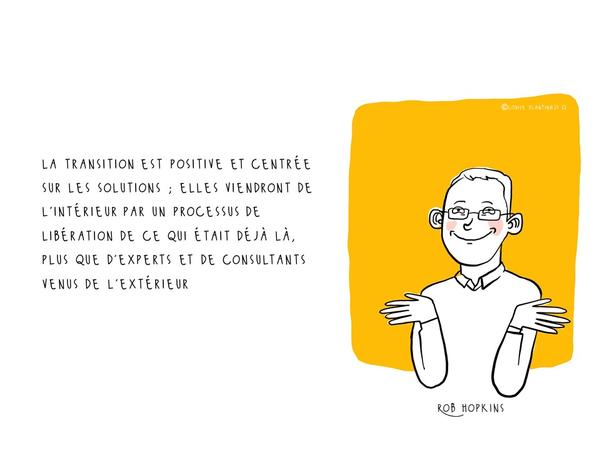 LA TRANSITION EST POSITIVE ET CENTRÉE
SUR LES SOLUTIONS ; ELLES VIENDRONT DE
L'INTÉRIEUR PAR UN PROCESSUS DE
LIBÉRATION DE CE QUI ÉTAIT DÉJÀ LÀ,
PLUS QUE D'EXPERTS ET DE CONSULTANTS
VENUS DE L'EXTÉRIEUR
ROB HOPKINS